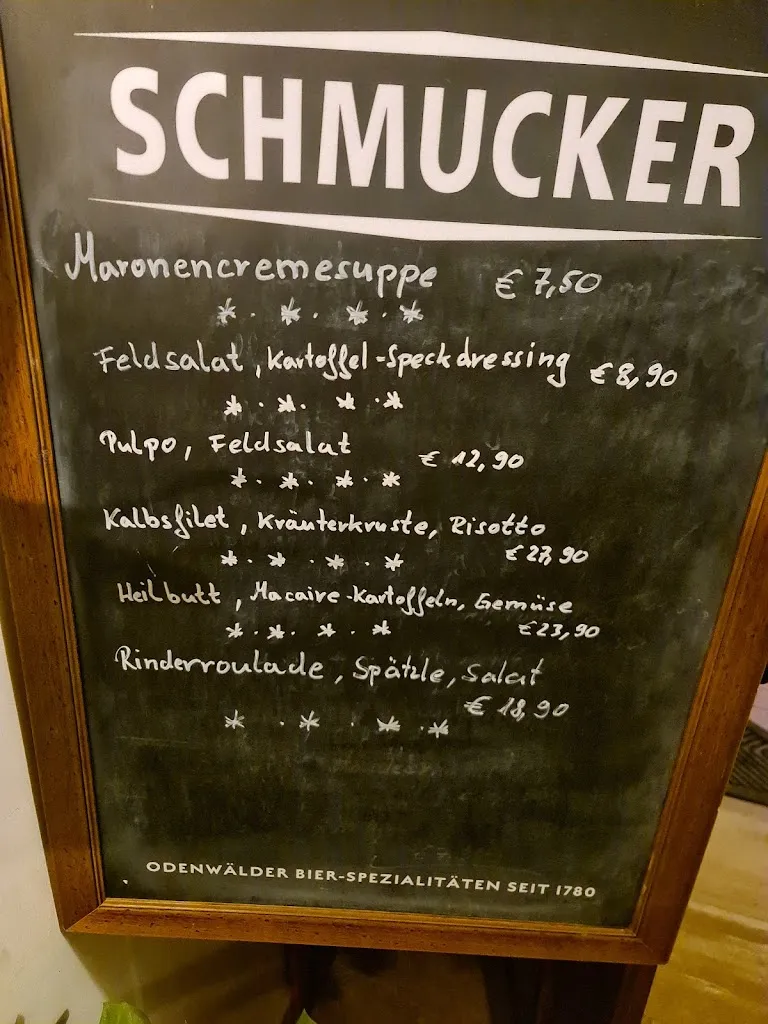 SCHMUCKER
Maronencremesuppe € 7,50
Feldsalat, Kartoffel-Speckdressing € 8,90
Pulpo, Feldsalat € 12,90
Kalbsfilet, Kräuterkruste, Risotto
€ 27,90
Heilbutt, Macaire-Kartoffeln, Gemüse
€ 23,90
Rinderroulade, Spätzle, Salat
€ 18,90
ODENWÄLDER BIER-SPEZIALITÄTEN SEIT 1780